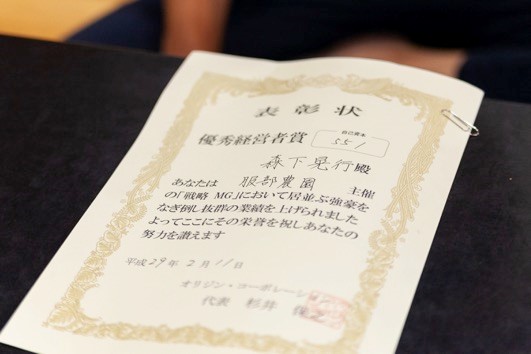 表彰状
優秀経営者賞 自己資本 551
森下晃行殿
あなたは 服部農園 主催
の「戦略 MG」において居並ぶ強豪を
なぎ倒し抜群の業績を上げられました
よってここにその栄誉を祝しあなたの
努力を讃えます
平成29年2月11日
オリジン・コーポレーシ
代表 杉井